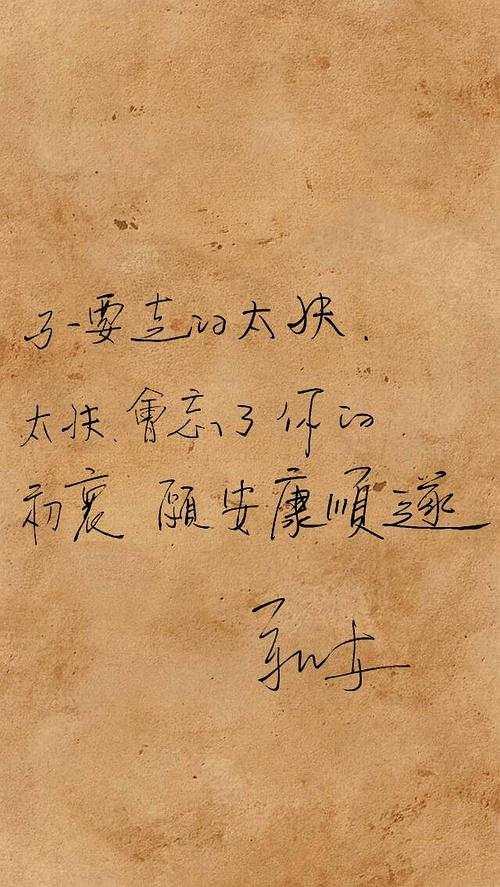 不要走的太快.
太快.會忘了你的
初衷 願安康順遂